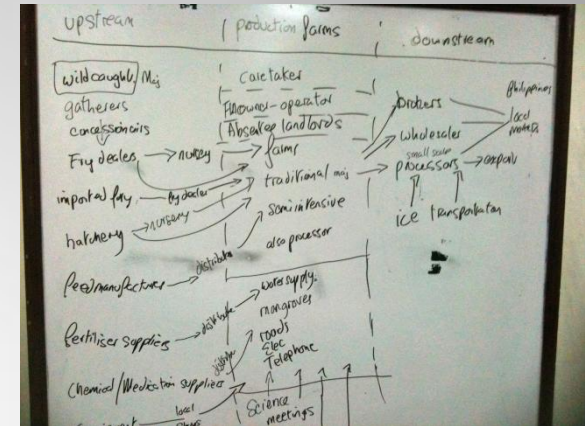 upstream
production farms
downstream
wild caught Maj
gatherers
Fry dealers
nursery
imported fry
fry dealer
hatchery
nursery
Feed manufactures
distributor
Fertiliser suppliers
distributor
Chemical/Medication suppliers
local
Caretaker
owner-operator
Absentee landlords
farms
traditional maj
semi intensive
also processor
water supply
mangroves
roads
Elec
Telephone
Science
meetings
Philippines
brokers
local
wholesaler
small scale
processors
export
ice transportation